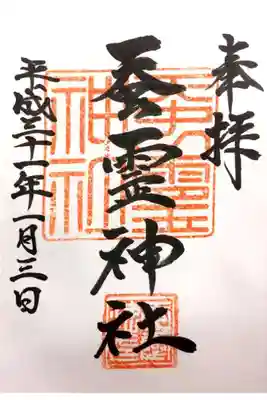 奉拝
蚕霊神社
神社
平成三十一年一月三日